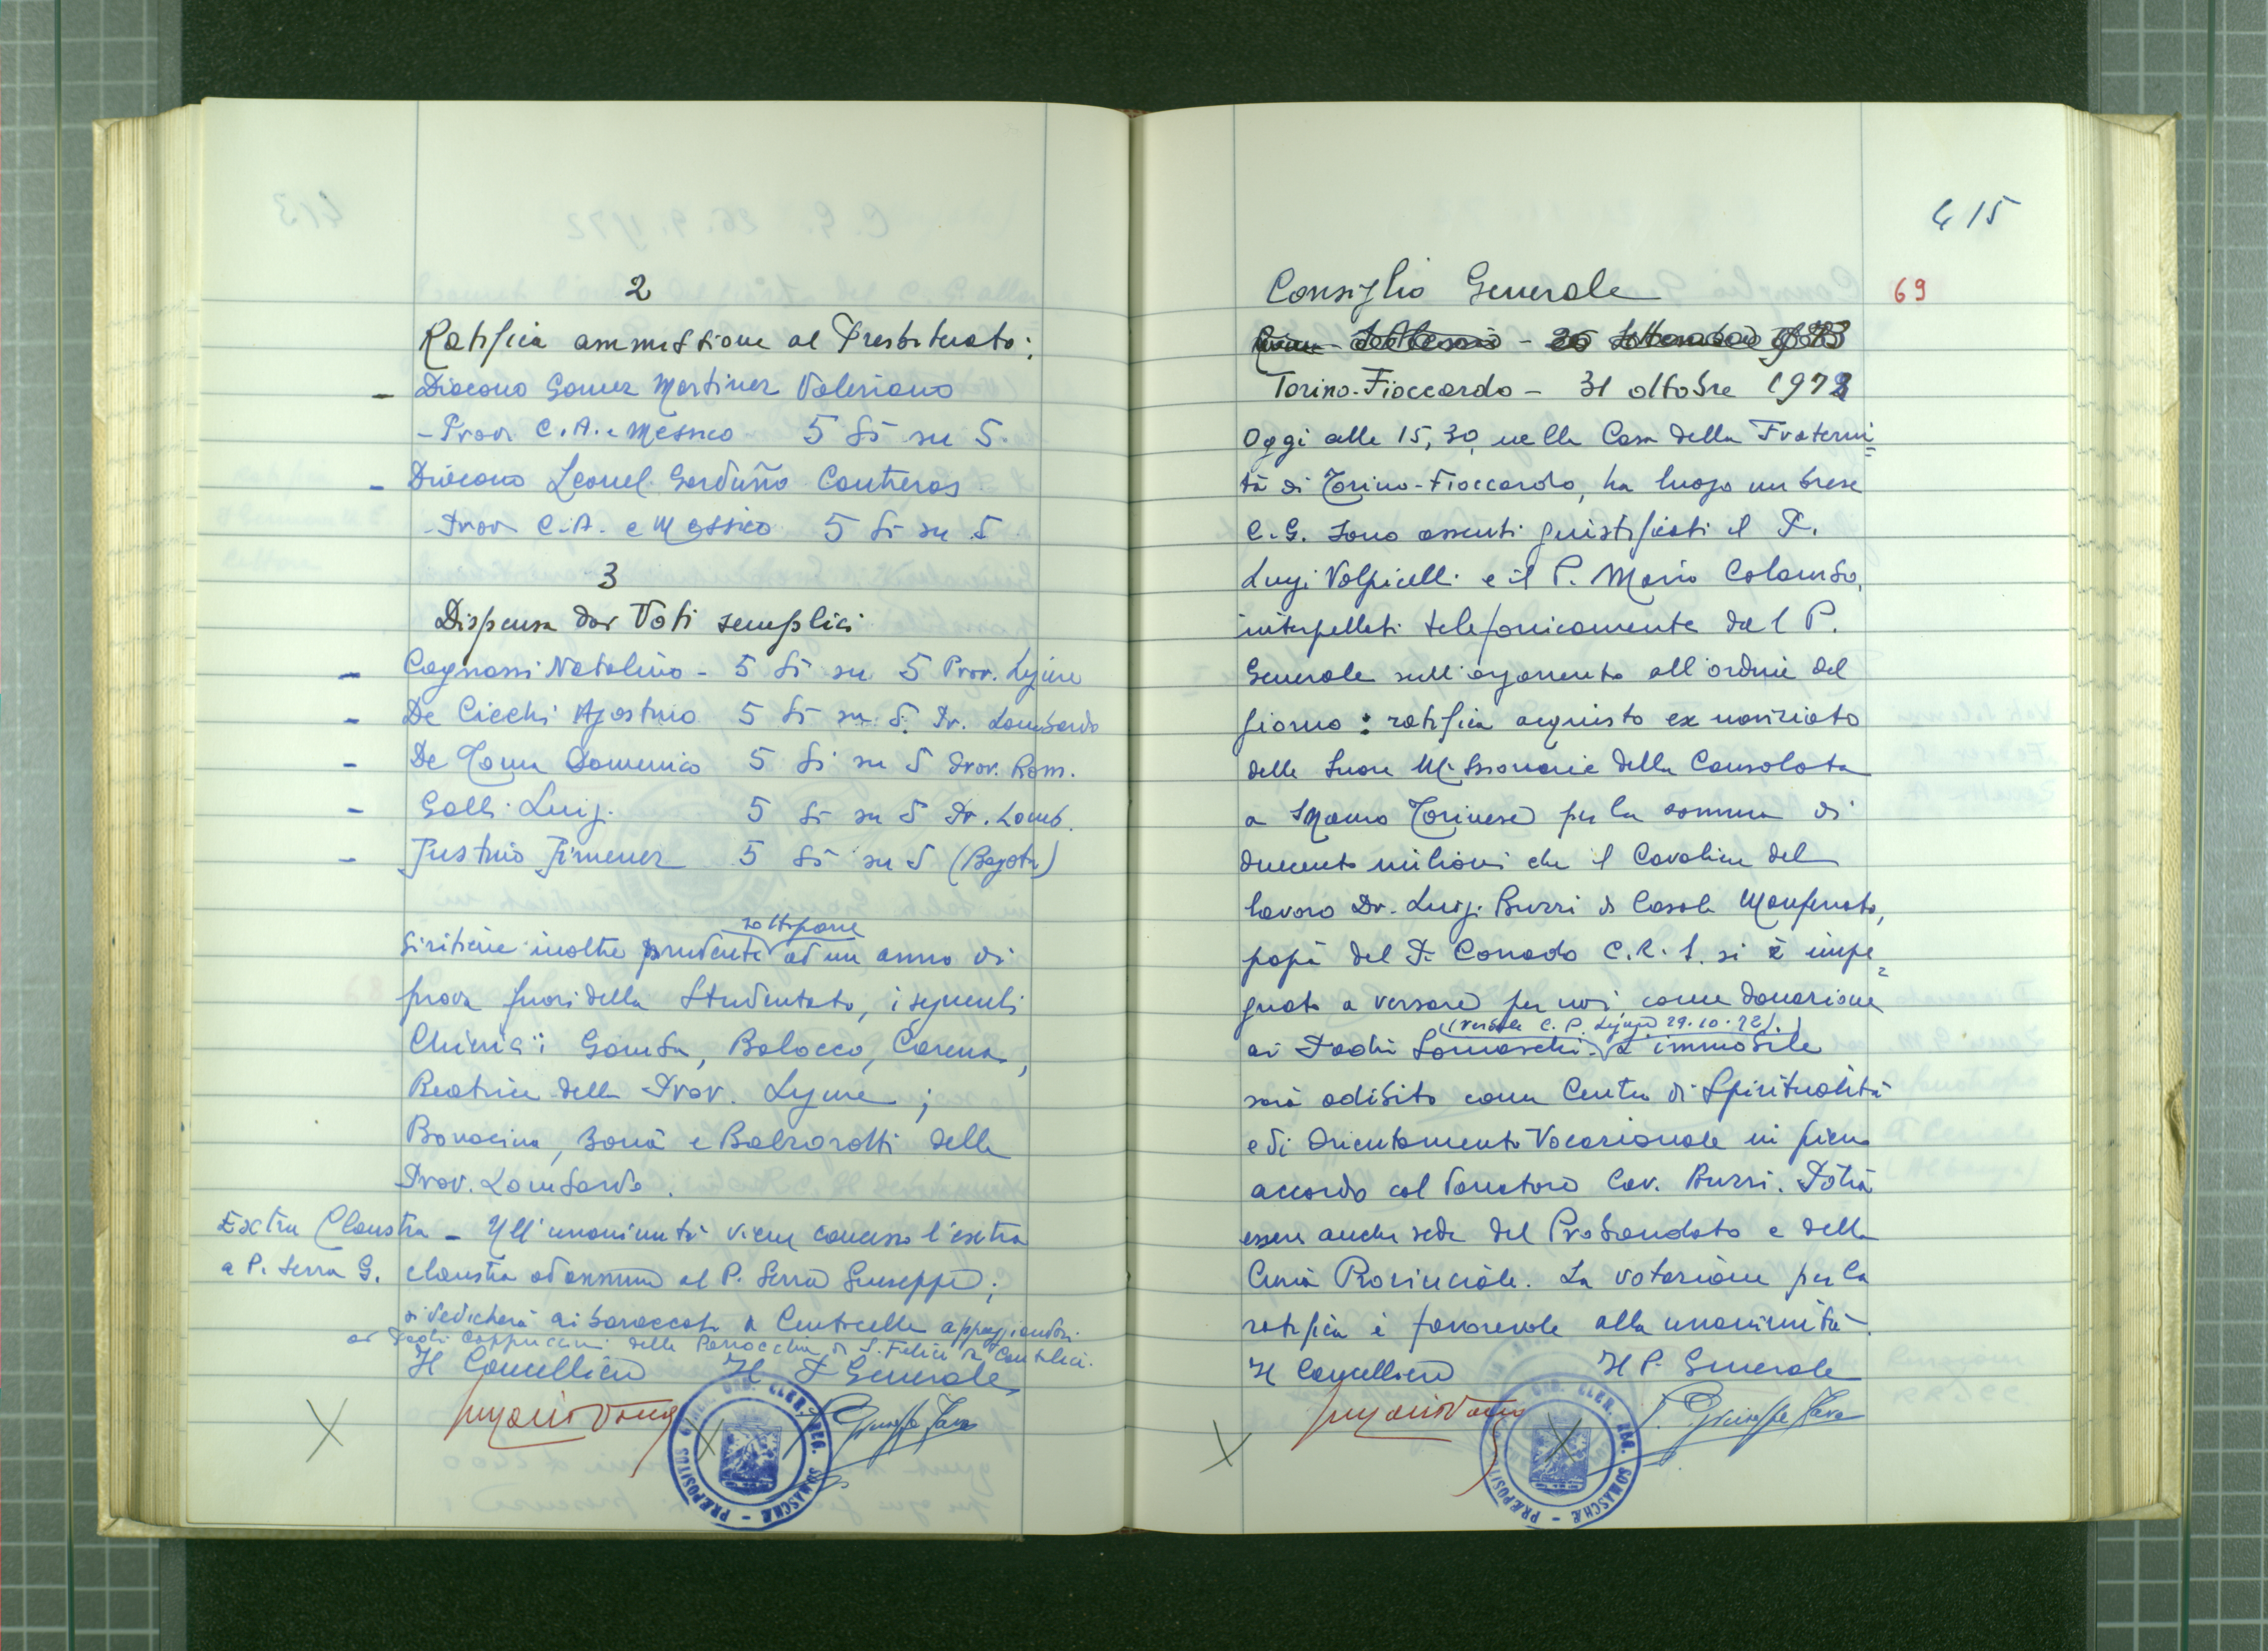 2
Ratifica ammissione al Presbiterato:
- Diacono Gomez Martinez Valeriano
- Prov. C.A. e Messico 5 sì su 5.
- Diacono Leonel Garduño Contreras
- Prov C.A. e Messico 5 sì su 5
3
Dispensa dai Voti semplici
- Cagnassi Natalino - 5 sì su 5 Prov. Ligure
- De Cicchi Agostino 5 sì su 5. Pr. Lombardo
- De Toma Domenico 5 sì su 5 Prov. Rom.
- Galli Luigi 5 sì su 5 Pr. Lomb.
- Justino Jimenez 5 sì su 5 (Bogota)
sottoporre
Si ritiene inoltre prudente ad un anno di
prova fuori dello Studentato, i seguenti
Chierici: Gomba, Balocco, Carena,
Beatrice della Prov. Ligure;
Bonacina, Bonà e Balzarotti della
Prov. Lombarda.
Extra Claustra - All'unanimità viene concesso l'extra
a P. Serra G. claustra ad annum al P. Serra Giuseppe;
si dedicherà ai baraccati a Centocelle appoggiandosi
ai Padri Cappuccini della Parrocchia di S. Felice da Cantalice.
Il Cancelliere Il P Generale
P. Giuseppe Fava
PRÆPOSITUS GEN. ORD. CLER. REG. SOMASCHÆ
415
Consiglio Generale 69
Torino-Fioccardo - 31 ottobre 1972
Oggi alle 15,30, nella Casa della Fraterni=
tà di Torino-Fioccardo, ha luogo un breve
C.G. Sono assenti giustificati il P.
Luigi Volpicelli e il P. Mario Colombo,
interpellati telefonicamente dal P.
Generale sull'argomento all'ordine del
giorno: ratifica acquisto ex noviziato
delle Suore Missionarie della Consolata
a S Mauro Torinese per la somma di
duecento milioni che il Cavaliere del
lavoro Dr. Luigi Buzzi di Casale Monferrato,
papà del P. Corrado C.R.S. si è impe=
gnato a versare per noi come donazione
(verbale C.P. Ligure 29.10.72).
ai Padri Somaschi. L'immobile
sarà adibito come Centro di Spiritualità
e di Orientamento Vocazionale in pieno
accordo col donatore Cav. Buzzi. Potrà
essere anche sede del Probandato e della
Curia Provinciale. La votazione per la
ratifica è favorevole alla unanimità.
Il Cancelliere Il P. Generale
P. Giuseppe Fava
PRÆPOSITUS GEN. ORD. CLER. REG. SOMASCHÆ